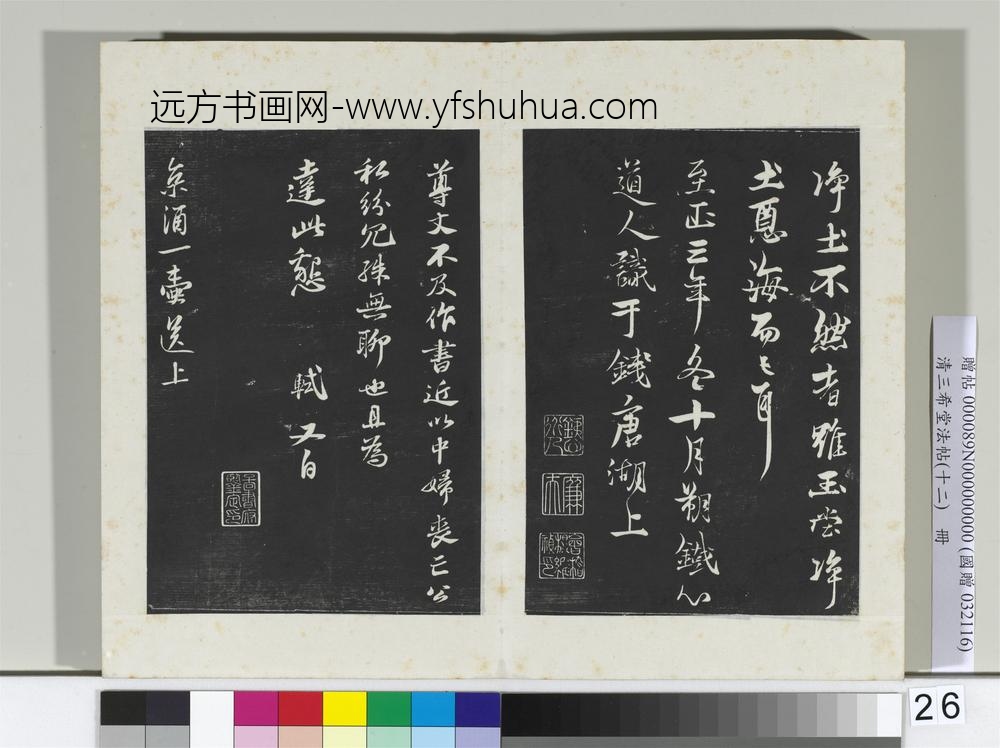 远方书画网-www.yfshuhua.com
淨土不然者雖玉瑩淨
土惡海而已耳
至正三年冬十月朔鐵心
道人識于錢唐湖上
尊丈不及作書近以中婦喪亡公
私紛冗殊無聊也且為
達此懇 軾又白
京酒一壺送上
贈帖 0000089N000000000 (國贈 032116)
清三希堂法帖(十二) 冊
26